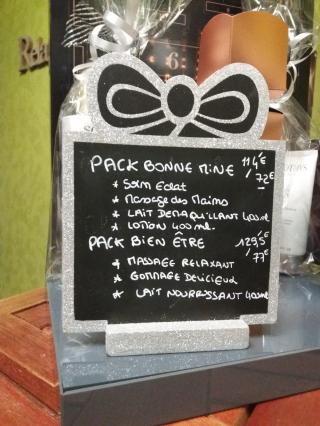 Rela
PACK BONNE MINE 114€
/ 72€
* Soin Eclat
* Massage des Mains
* LAIT DEMAQUILLANT 400ml
* LOTION 400ml.
PACK BIEN ÊTRE 129,5€
/ 77€
* MASSAGE RELAXANT
* GOMMAGE DELICIEUX
* LAIT NOURRISSANT 400ml